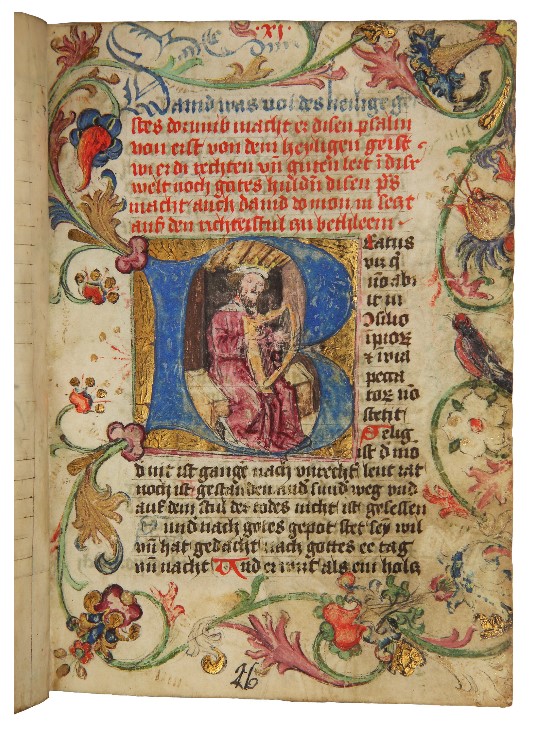 ·XI·
Dauid was vol des heilige ge
stes dorumb macht er disen psalm
von erst von dem heyligen geist
wi er di rechten vn̄ guten lert ī dise
welt noch gotes huld vn̄ disen ps
macht auch dauid do mon in setzt
auf den richterstul zu bethleem
B
eatus
vir q̄
nō abi
it in
ꝯsilio
īpior
⁊ ī via
pecca
tor nō
stetit
Selig
ist d̓ mō
d̓ nit ist gange nach vnrecht̓ leut rat
noch ist gestanden auf sund weg vnd
auf dem stul des todes nicht ist gesessen
und nach gotes gepot stet sey wil
vn̄ hat gedacht nach gottes ee tag
vn̄ nacht Und er wirt als ein holcz
26